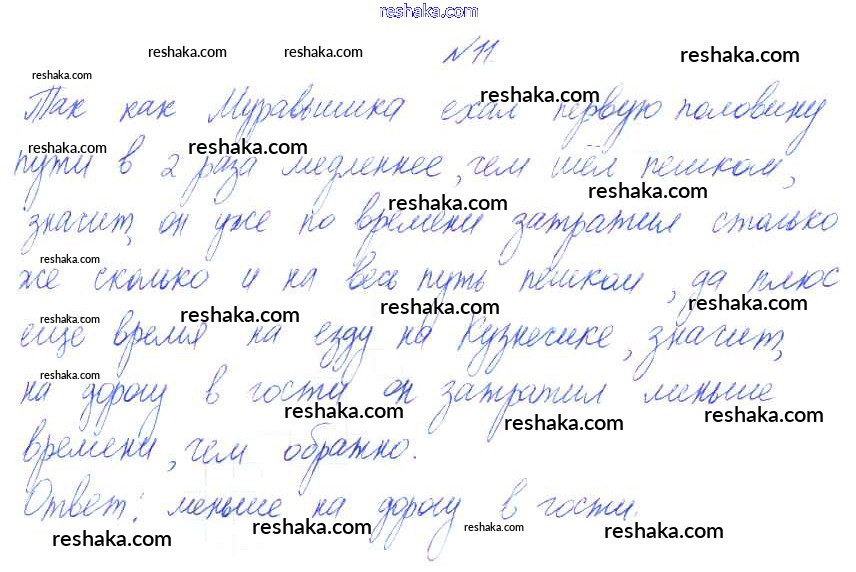 reshaka.com
reshaka.com reshaka.com №11 reshaka.com
reshaka.com
Так как Муравьишка ехал первую половину
reshaka.com
пути в 2 раза медленнее, чем шёл пешком,
reshaka.com reshaka.com reshaka.com
значит, он уже по времени затратил столько
reshaka.com reshaka.com
же сколько и на весь путь пешком, да плюс
reshaka.com reshaka.com
еще время на езду на Кузнечике, значит,
reshaka.com reshaka.com reshaka.com
на дорогу в гости он затратил меньше
reshaka.com reshaka.com reshaka.com
времени, чем обратно.
reshaka.com reshaka.com
Ответ: меньше на дорогу в гости.
reshaka.com reshaka.com reshaka.com reshaka.com